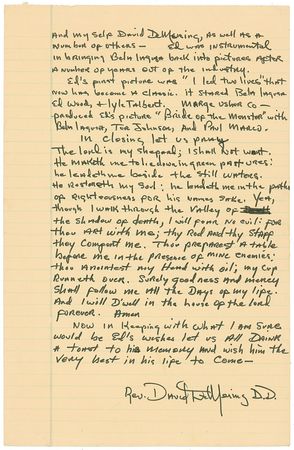 And my self David DeMering, as well as a
Number of others — Ed was instrumental
in bringing Bela Lugosi back into pictures after
a number of years out of the industry.
Ed's first picture was "I led two lives" that
now has become a classic. it stared Bela Lugosi
Ed Wood, & Lyle Talbert. Marge Usher co-
produced Ed's picture "Bride of the Monster" with
Bela Lugosi, Tor Johnson, and Paul Marco.
In closing let us pray
The lord is my shepard; I shall not want.
He maketh me to lie down in green pastures:
he leadeth me beside the still waters.
He restoreth my soul; he leadeth me in the paths
of righteousness for his names sake. Yea,
though I walk through the valley of
the shadow of death, I will fear no evil: for
thou art with me; thy rod and thy staff
they comfort me. Thou preparest a table
before me in the presence of mine enemies;
thou anointest my head with oil; my cup
runneth over. Surely goodness and mercy
shall follow me all the days of my life.
And I will dwell in the house of the lord
forever. Amen
Now in keeping with what I am sure
would be Ed's wishes let us all drink
a toast to his memory and wish him the
very best in his life to come—
Rev. David DeMering D.D.